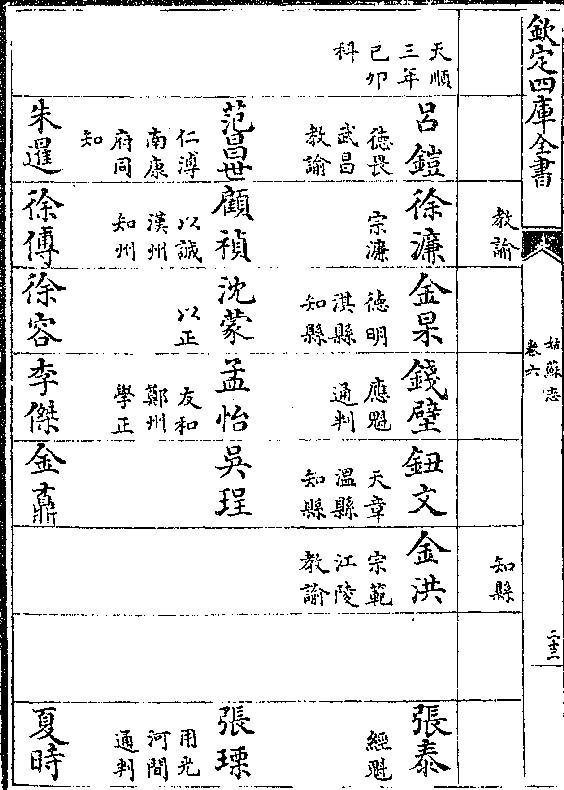 欽定四庫全書
姑蘇志
卷六
二十三
教諭
知縣
天順
三年
己卯
科
呂鎧
徳畏
武昌
教諭
范昌世
仁溥
南康
府同
知
朱暹
徐濂
宗濂
顧禎
以誠
漢州
知州
徐傅
金杲
徳明
淇縣
知縣
沈蒙
以正
徐容
錢璧
應魁
通判
孟怡
友和
鄭州
學正
李傑
鈕文
天章
溫縣
知縣
吳珵
金鼒
金洪
宗範
江陵
教諭
張泰
經魁
張瑮
用光
河間
通判
夏時